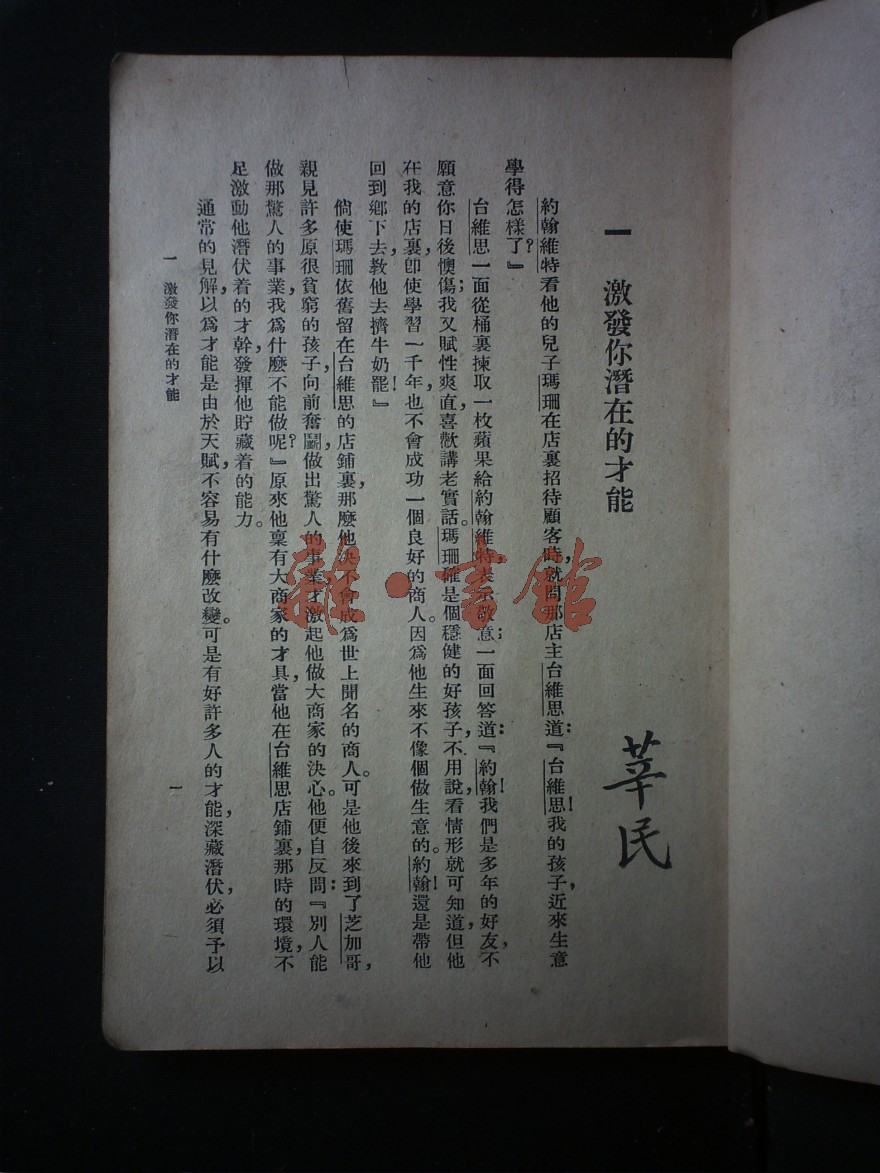 一 激發你潛在的才能
莘民
約翰維特看他的兒子瑪珊在店裏招待顧客時，就問那店主台維思道：『台維思！我的孩子，近來生意
學得怎樣了？』
台維思一面從桶裏揀取一枚蘋果給約翰維特，表示敬意；一面回答道：『約翰！我們是多年的好友，不
願意你日後懊傷；我又賦性爽直，喜歡講老實話。瑪珊確是個穩健的好孩子，不用說，看情形就可知道，但他
在我的店裏，卽使學習一千年，也不會成功一個良好的商人。因爲他生來不像個做生意的。約翰！還是帶他
回到鄉下去，教他去擠牛奶罷！』
倘使瑪珊依舊留在台維思的店鋪裏，那麼他決不會成爲世上聞名的商人。可是他後來到了芝加哥，
親見許多原很貧窮的孩子，向前奮鬭，做出驚人的事業，才激起他做大商家的決心。他便自反問：『別人能
做那驚人的事業，我爲什麼不能做呢？』原來他稟有大商家的才具，當他在台維思店鋪裏，那時的環境，不
足激動他潛伏着的才幹，發揮他貯藏着的能力。
通常的見解，以爲才能是由於天賦，不容易有什麼改變。可是有好許多人的才能，深藏潛伏，必須予以
一 激發你潛在的才能
一
雜·書館